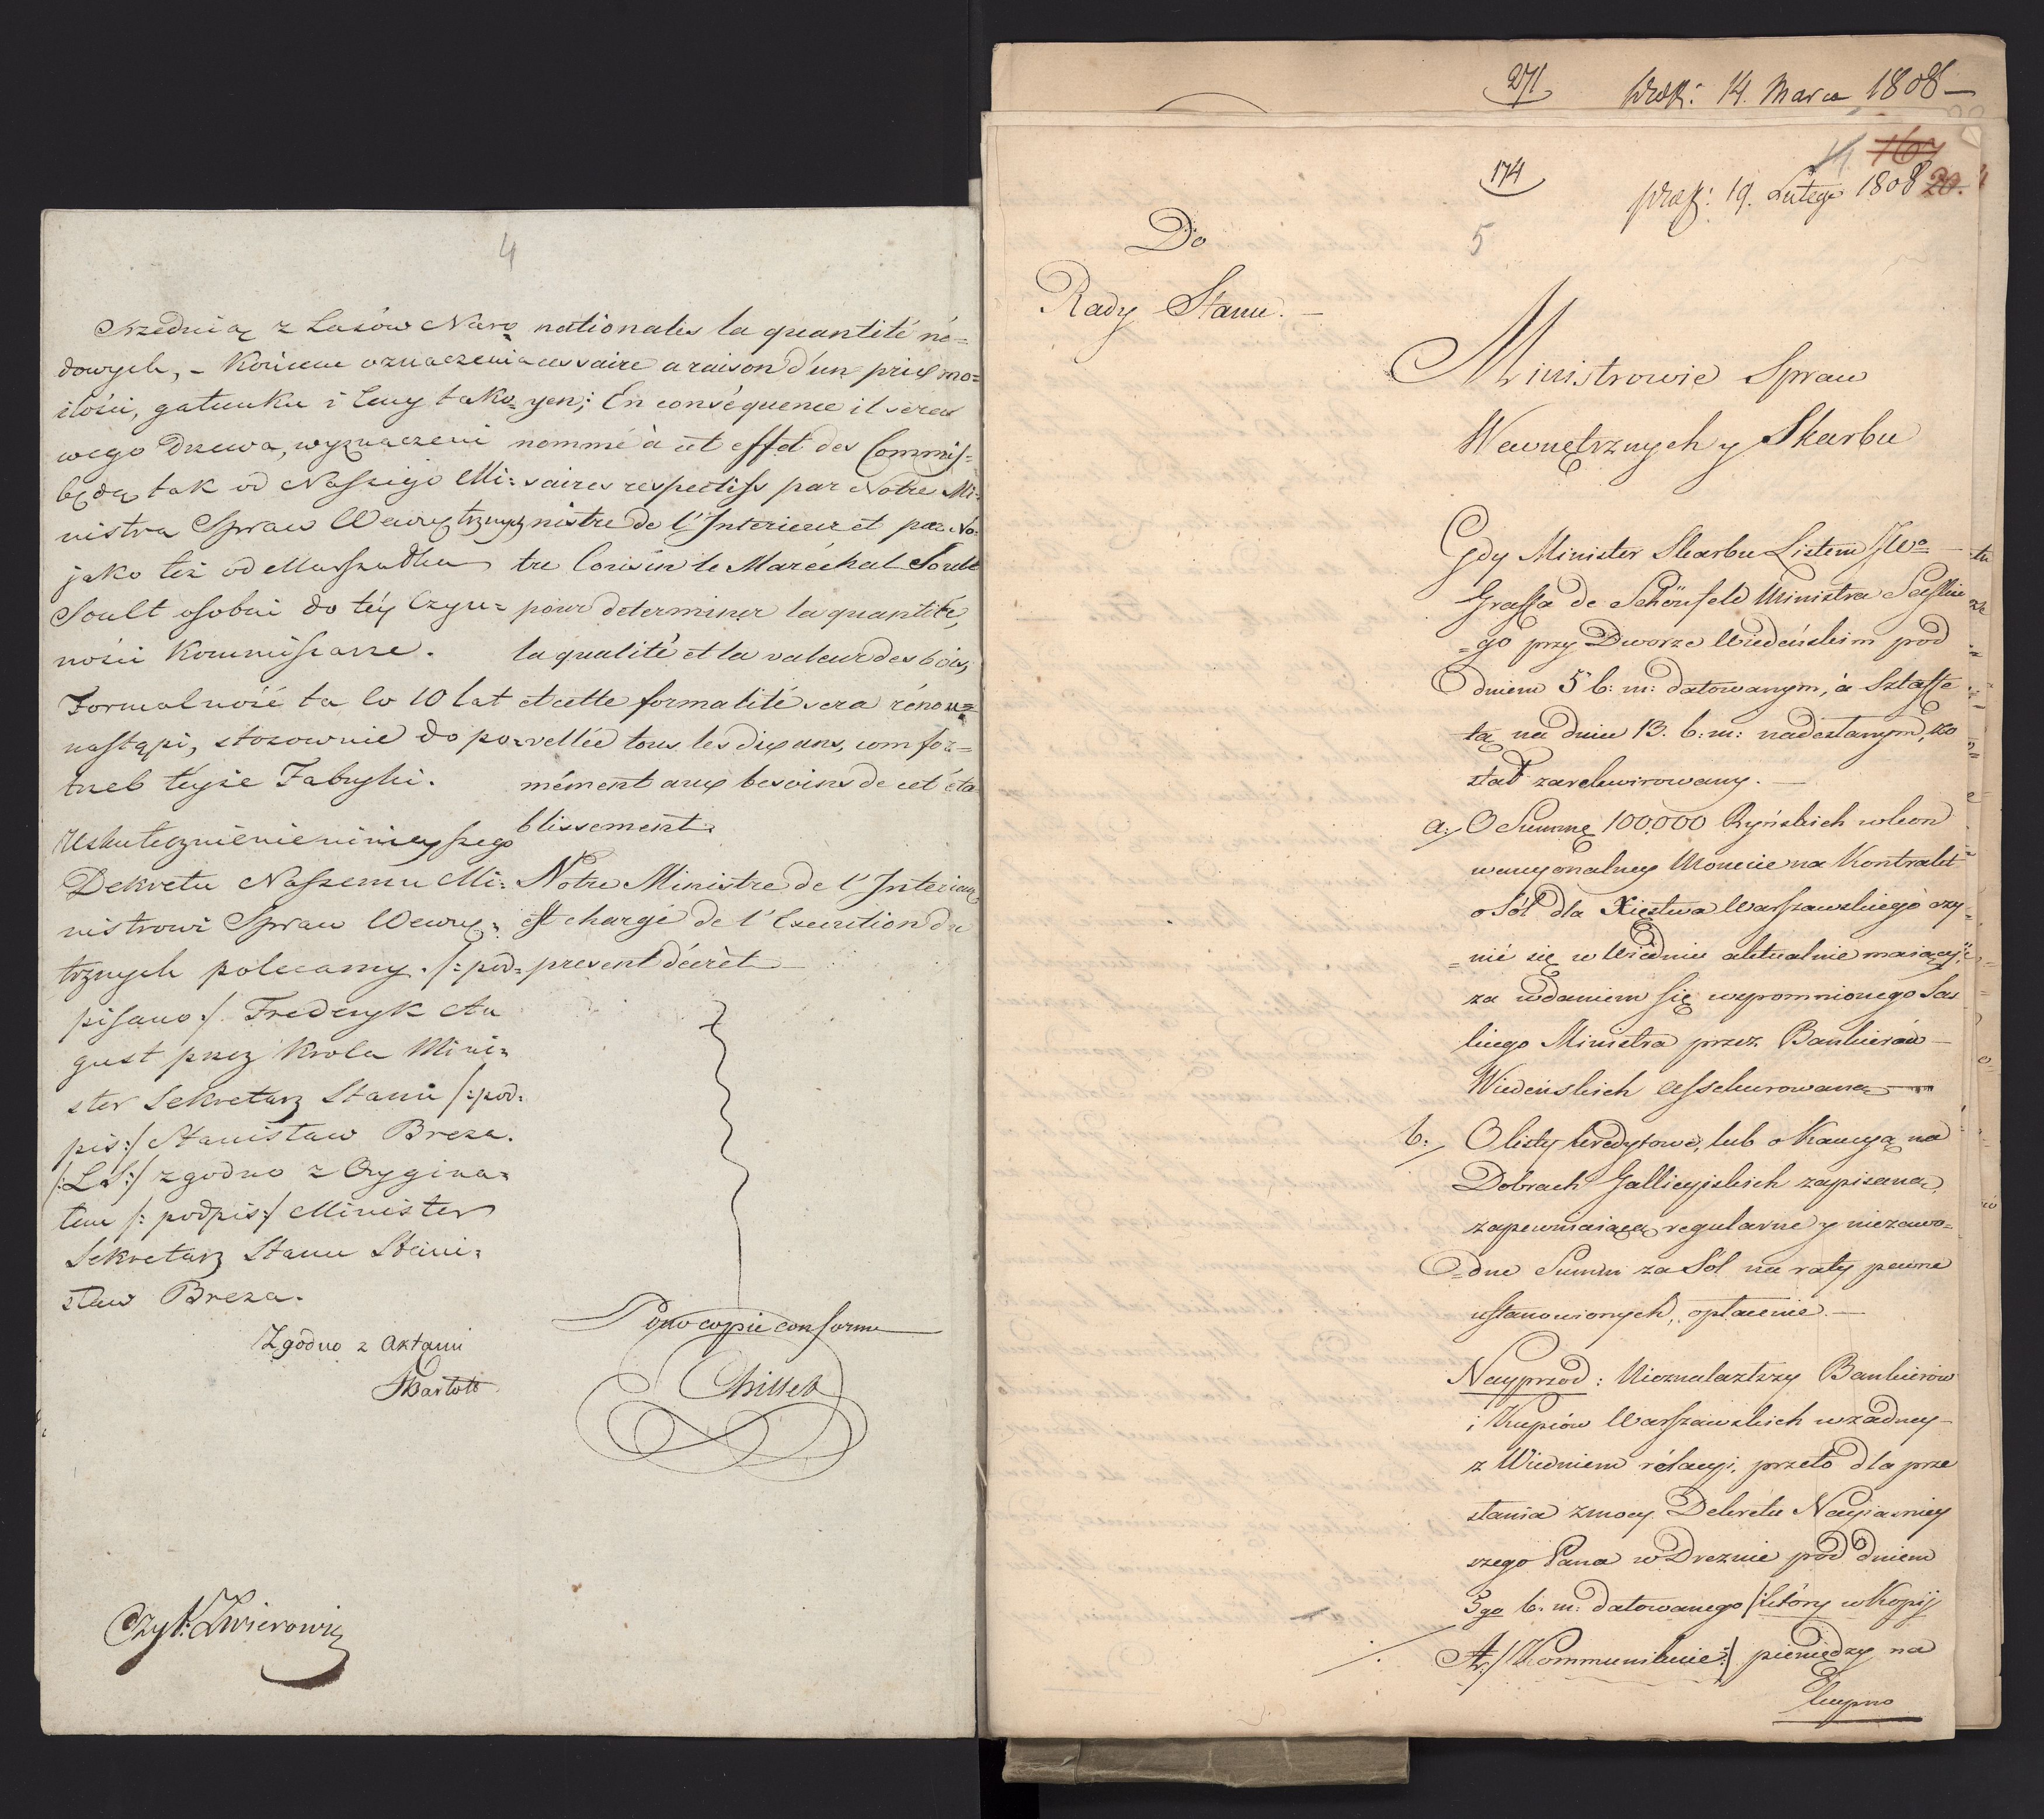 4
średnią z Lasów Naro
dowych, - Końcem oznaczenia
ilości, gatunku i Ceny tako=
wego Drzewa, wyznaczeni
będą tak od Naszego Mi=
nistra Spraw Wewnętrznych
jako też od Marszałka
Soult osobni do téy Czyn=
ności Kommissarze.
Formalność ta co 10 lat
nastąpi, stosownie do po=
trzeb teyże Fabryki.
Uskutecznienie ninieyszego
Dekretu Naszemu Mi=
nistrowi Spraw Wewnę=
trznych polecamy. /:pod=
pisano:/ Fryderyk Au
gust przez Krola Mini=
ster Sekretarz Stanu /:pod=
pis:/ Stanisław Breza.
/:LS:/ zgodno z Orygina=
łem /:podpis:/ Minister
Sekretarz Stanu Stani=
sław Breza.
Zgodno z Aktami
nationales la quantité né=
cessaire a raison d'un prix mo=
yen; En conséquence il sera
nommé à cet effet des Commis=
saires respectifs par Notre Mi=
nistre de l'Interieur et par No=
tre Cousin le Maréchal Soult
pour determiner la quantité,
la qualité et la valeur des bois,
et cette formalité sera rénou=
vellée tous les dix ans, comfor=
mément aux besoins de cet éta
blissement.
Notre Ministre de l'Interieur
est chargé de l'Execution du
present décrèt
Pour copie conforme
Czyt: Zwierowicz
271
14. Marca 1808
174
167
19. Lutego 1808
20.
5
Do
Rady Stanu.
Ministrowie Spraw
Wewnętrznych y Skarbu
Gdy Minister Skarbu Listem JWo
Graffa de Schönfeld Ministra Saskie
=go przy Dworze Wiedeńskim pod
dniem 5 b: m: datowanym, a Sztaffe
tą na dniu 13. b: m: nadesłanym, zo
stał zarekwirowany.
a:/ O Summę 100,000 Ryńskich wkon
wencyonalney Monecie na Kontrakt
o Sól dla Xięstwa Warszawskiego czy
=nić się w Wiedniu aktualnie maiący,
za wdaniem się wspomnionego Sas
kiego Ministra przez Bankierów
Wiedeńskich assekurowaną
b:/ O listy kredytowe, lub o Kaucyą na
Dobrach Gallicyiskich zapisaną,
zapewniaiącą regularne y niezawo=
=dne Summ za Sól na raty pewne
ustanowionych, opłacenie.
Nayprzod: Nieznalazłszy Bankierów
i Kupców Warszawskich w żadney
z Wiedniem rélacyi, przeto dla prze
słania z mocy Dekretu Nayiaśniey
szego Pana w Dreznie pod dniem
3go b: m: datowanego /:który w Kopij
A:/ Kommunikuie:/ pieniędzy na
Kupno